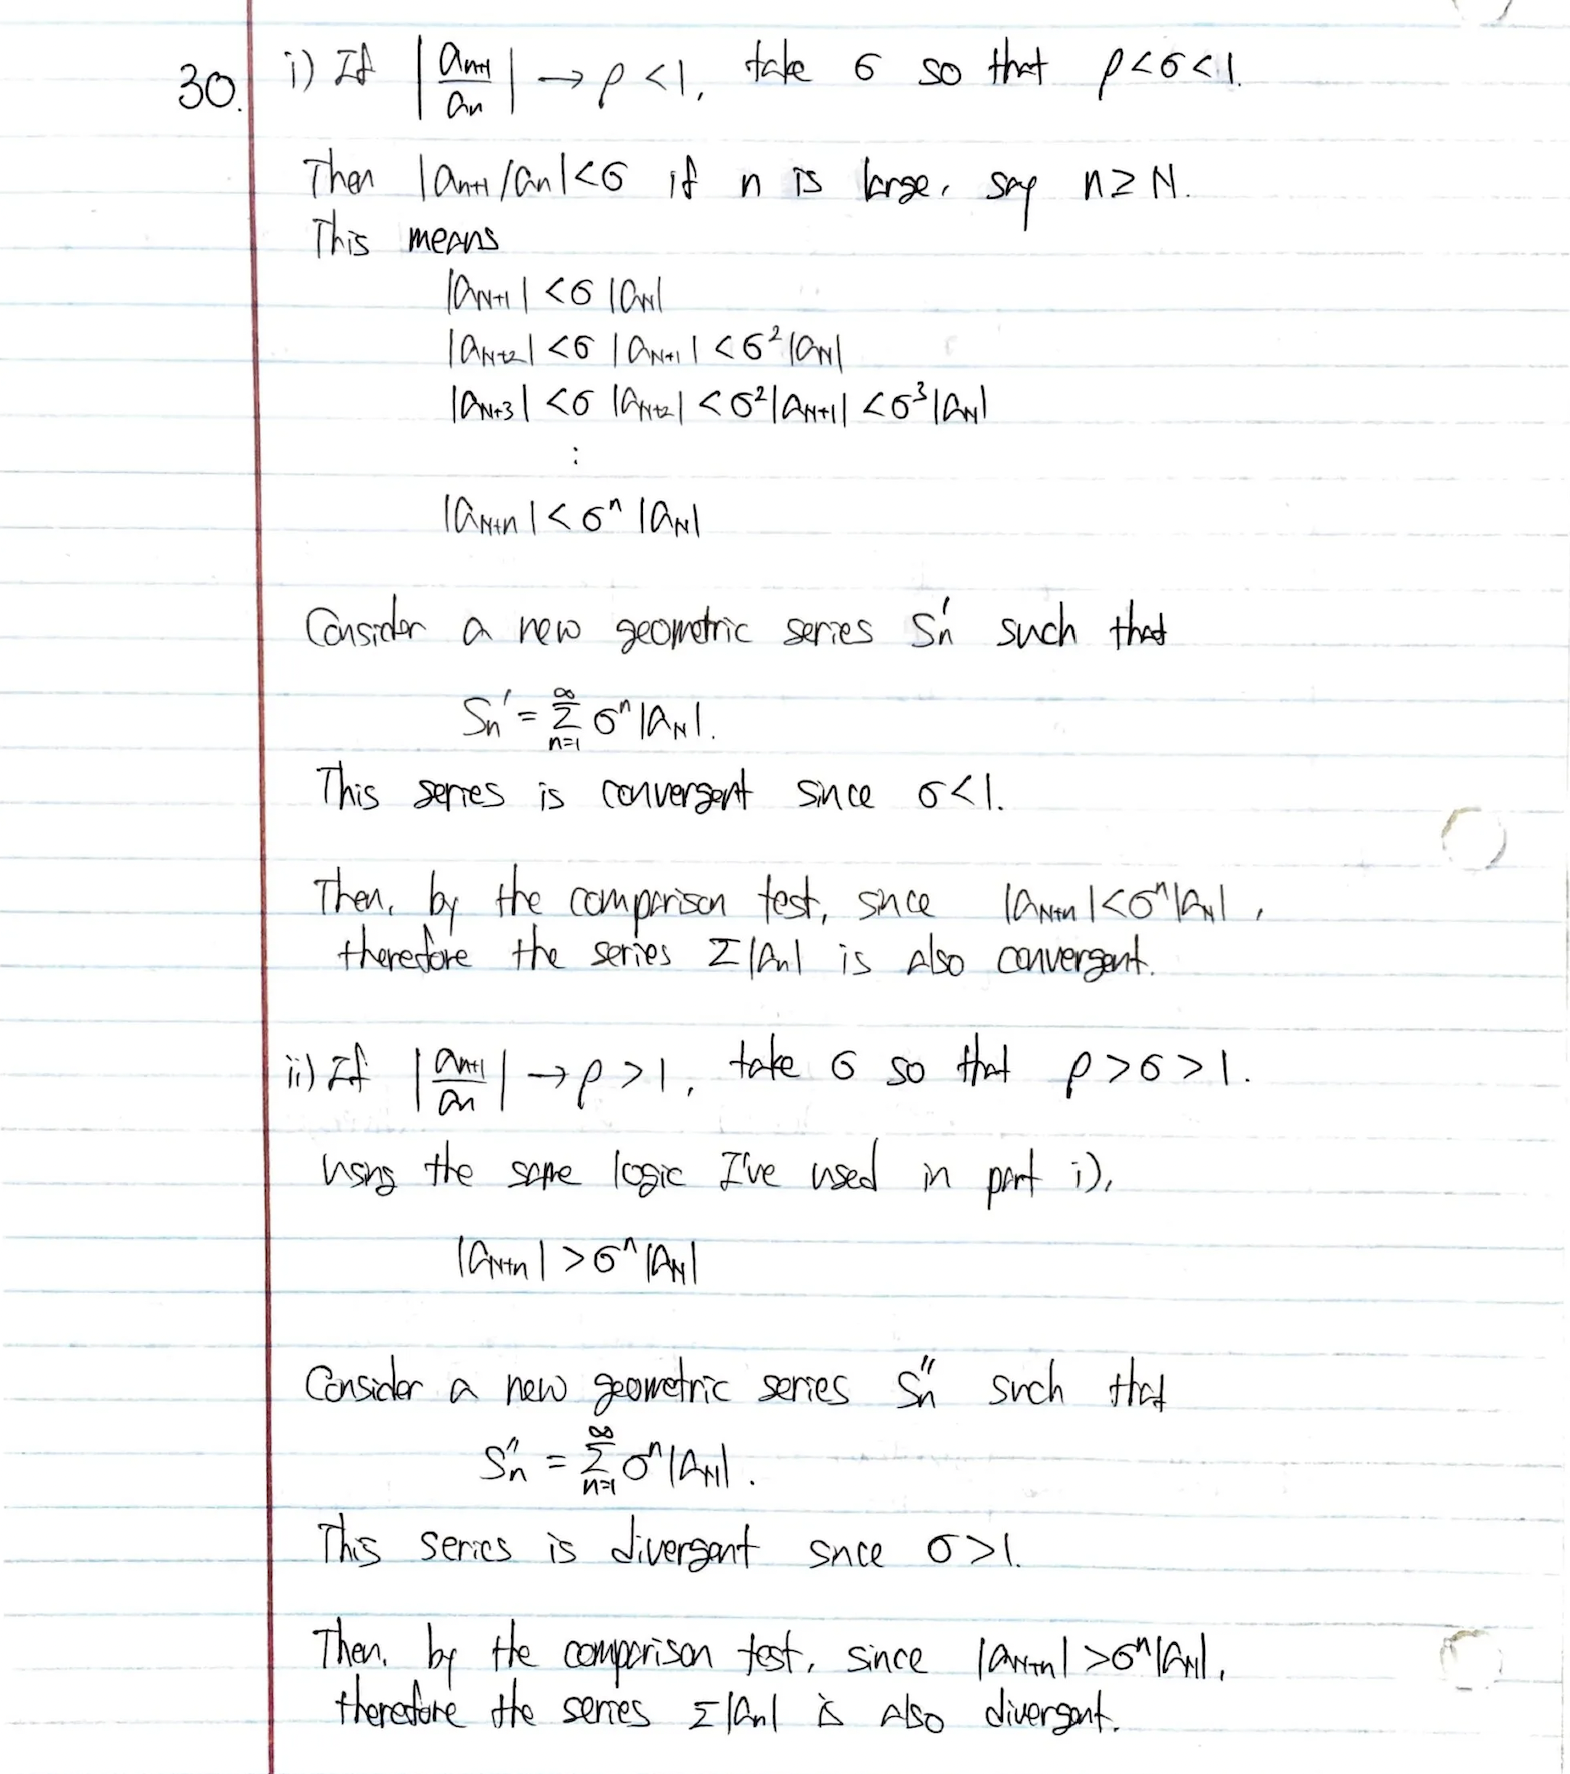 30. i) If |aₙ₊₁/aₙ| → ρ < 1, take σ so that ρ<σ<1.
Then |aₙ₊₁/aₙ|<σ if n is large, say n ≥ N.
This means
|a_{N+1}| < σ |a_N|
|a_{N+2}| < σ |a_{N+1}| < σ²|a_N|
|a_{N+3}| < σ |a_{N+2}| < σ²|a_{N+1}| < σ³|a_N|
:
|a_{N+n}| < σⁿ |a_N|
Consider a new geometric series Sₙ' such that
Sₙ' = ∑_{n=1}^{∞} σⁿ|a_N|.
This series is convergent since σ<1.
Then, by the comparison test, since |a_{N+n}|<σⁿ|a_N|,
therefore the series Σ|aₙ| is also convergent.
ii) If |aₙ₊₁/aₙ| → ρ > 1, take σ so that ρ>σ>1.
using the same logic I've used in part i),
|a_{N+n}| > σⁿ|a_N|
Consider a new geometric series Sₙ'' such that
Sₙ'' = ∑_{n=1}^{∞} σⁿ|a_N|.
This series is divergent since σ>1.
Then, by the comparison test, since |a_{N+n}| >σⁿ|a_N|,
therefore the series Σ|aₙ| is also divergent.